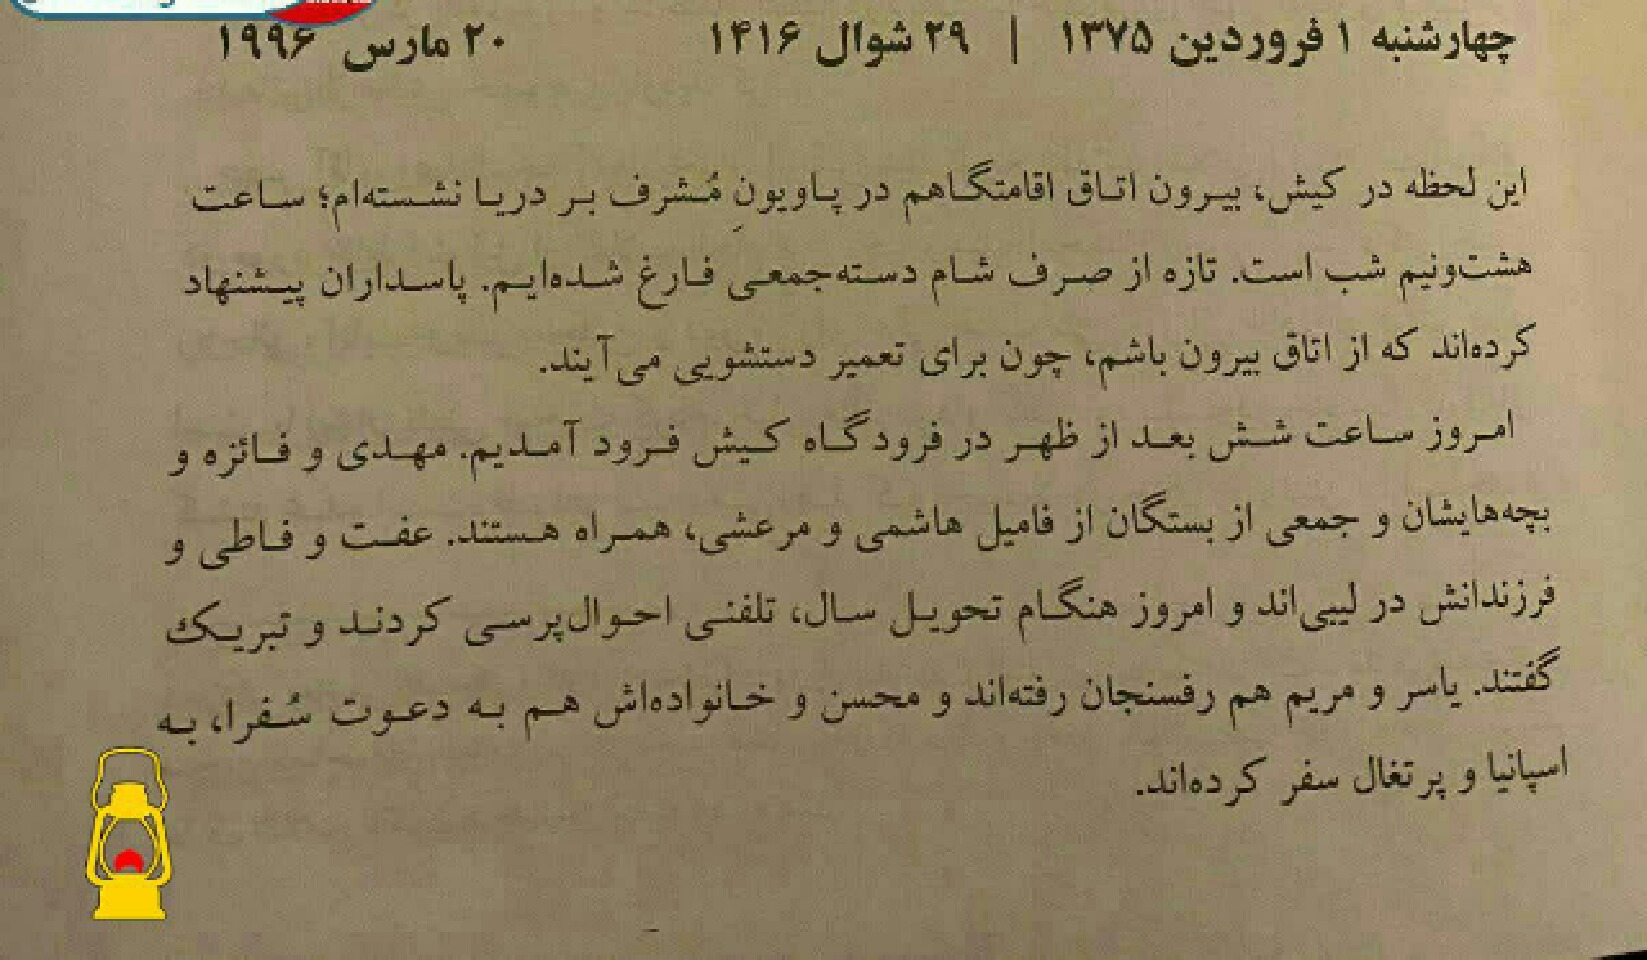 چهارشنبه ۱ فروردین ۱۳۷۵ | ۲۹ شوال ۱۴۱۶ ۲۰ مارس ۱۹۹۶
این لحظه در کیش، بیرون اتاق اقامتگاهم در پاویونِ مُشرف بر دریا نشسته‌ام؛ ساعت
هشت‌ونیم شب است. تازه از صرف شام دسته‌جمعی فارغ شده‌ایم. پاسداران پیشنهاد
کرده‌اند که از اتاق بیرون باشم، چون برای تعمیر دستشویی می‌آیند.
امروز ساعت شش بعد از ظهر در فرودگاه کیش فرود آمدیم. مهدی و فائزه و
بچه‌هایشان و جمعی از بستگان از فامیل هاشمی و مرعشی، همراه هستند. عفت و فاطی و
فرزندانش در لیبی‌اند و امروز هنگام تحویل سال، تلفنی احوال‌پرسی کردند و تبریک
گفتند. یاسر و مریم هم رفسنجان رفته‌اند و محسن و خانواده‌اش هم به دعوت سُفرا، به
اسپانیا و پرتغال سفر کرده‌اند.